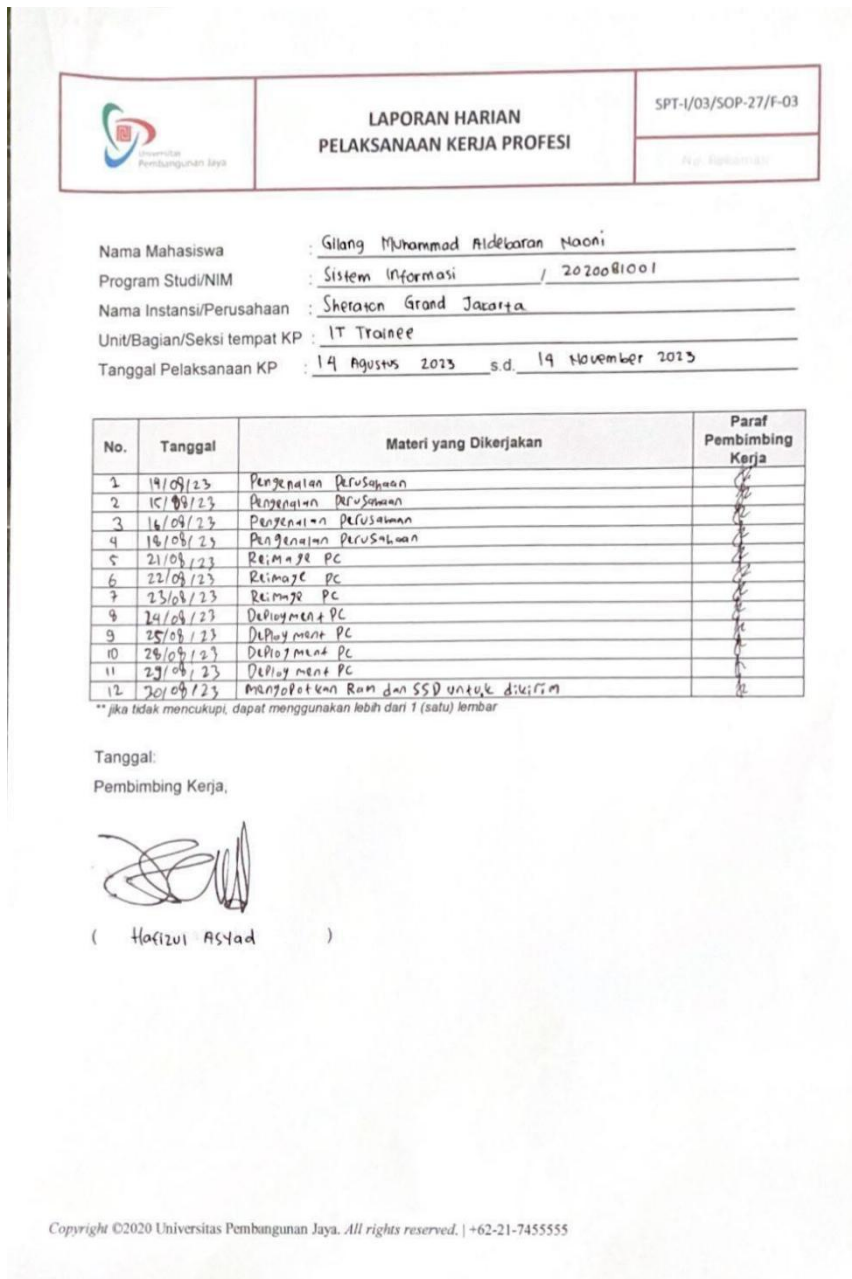 Universitas
Pembangunan Jaya
LAPORAN HARIAN
PELAKSANAAN KERJA PROFESI
SPT-I/03/SOP-27/F-03
No. Rekaman
Nama Mahasiswa : Gilang Muhammad Aldebaran Naoni
Program Studi/NIM : Sistem Informasi / 2020081001
Nama Instansi/Perusahaan : Sheraton Grand Jacarta
Unit/Bagian/Seksi tempat KP : IT Trainee
Tanggal Pelaksanaan KP : 14 Agustus 2023 s.d. 14 November 2023
No. Tanggal Materi yang Dikerjakan Paraf Pembimbing Kerja
1 14/08/23 Pengenalan Perusahaan
2 15/08/23 Pengenalan Perusahaan
3 16/08/23 Pengenalan Perusahaan
4 18/08/23 Pengenalan Perusahaan
5 21/08/23 Reimage PC
6 22/08/23 Reimage PC
7 23/08/23 Reimage PC
8 24/08/23 Deployment PC
9 25/08/23 Deployment PC
10 28/08/23 Deployment PC
11 29/08/23 Deployment PC
12 30/08/23 Mengopotkan Ram dan SSD untuk dikirim
** jika tidak mencukupi, dapat menggunakan lebih dari 1 (satu) lembar
Tanggal:
Pembimbing Kerja,
( Hafizul Asyad )
Copyright ©2020 Universitas Pembangunan Jaya. All rights reserved. | +62-21-7455555